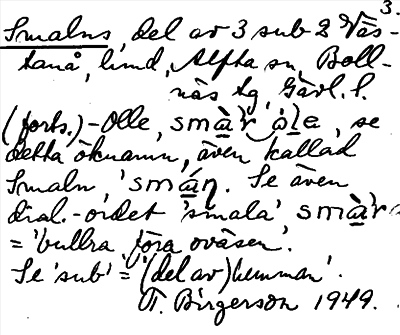 3.
Smalns, del av 3 sub 2 Väs-
tanå, lmd, Alfta sn, Boll-
näs tg, Gävl. l.
(forts.) - Olle, se
detta öknamn, även kallad
Smaln, Se även
dial.-ordet 'smala',
= 'bullra, föra oväsen'.
Se 'sub' = '(del av) hemman'.
T. Birgerson 1949.